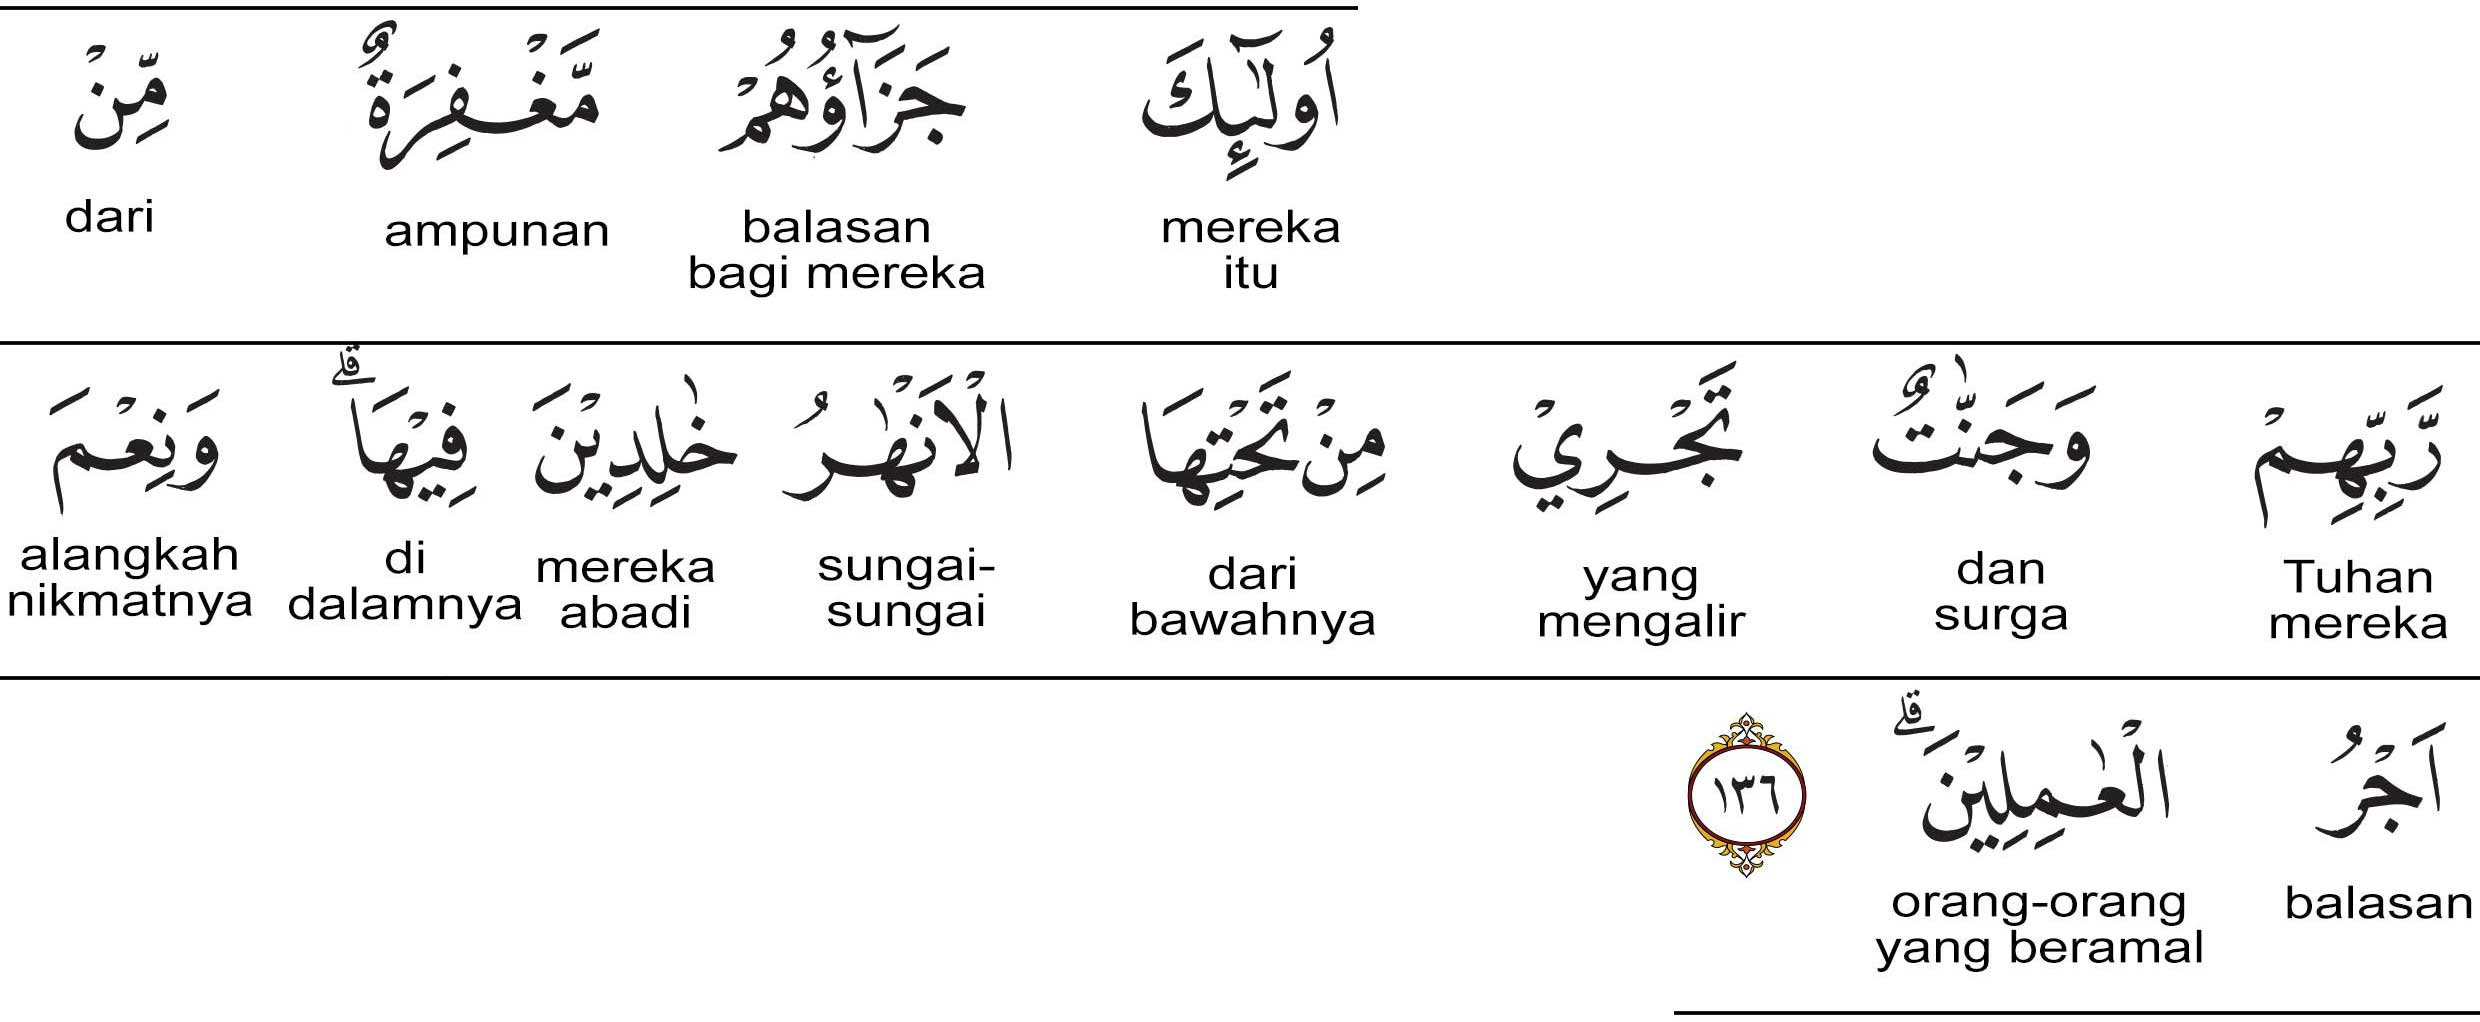 اُولٰۤىِٕكَ جَزَاۤؤُهُمْ مَّغْفِرَةٌ مِّنْ
mereka itu balasan bagi mereka ampunan dari
رَّبِّهِمْ وَجَنّٰتٌ تَجْرِيْ مِنْ تَحْتِهَا الْاَنْهٰرُ خٰلِدِيْنَ فِيْهَاۗ وَنِعْمَ
Tuhan mereka dan surga yang mengalir dari bawahnya sungai-sungai mereka abadi di dalamnya alangkah nikmatnya
اَجْرُ الْعٰمِلِيْنَۗ ١٣٦
balasan orang-orang yang beramal